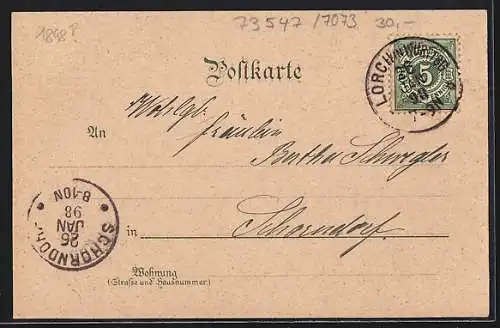 1898?
73547/7073 30,-
Postkarte
LORCH
5
An
Wohlgb.
Fräulein
Bertha Schwegler
in Schorndorf
SCHORNDORF
26
JAN
98
8-10N
Wohnung
(Straße und Hausnummer)